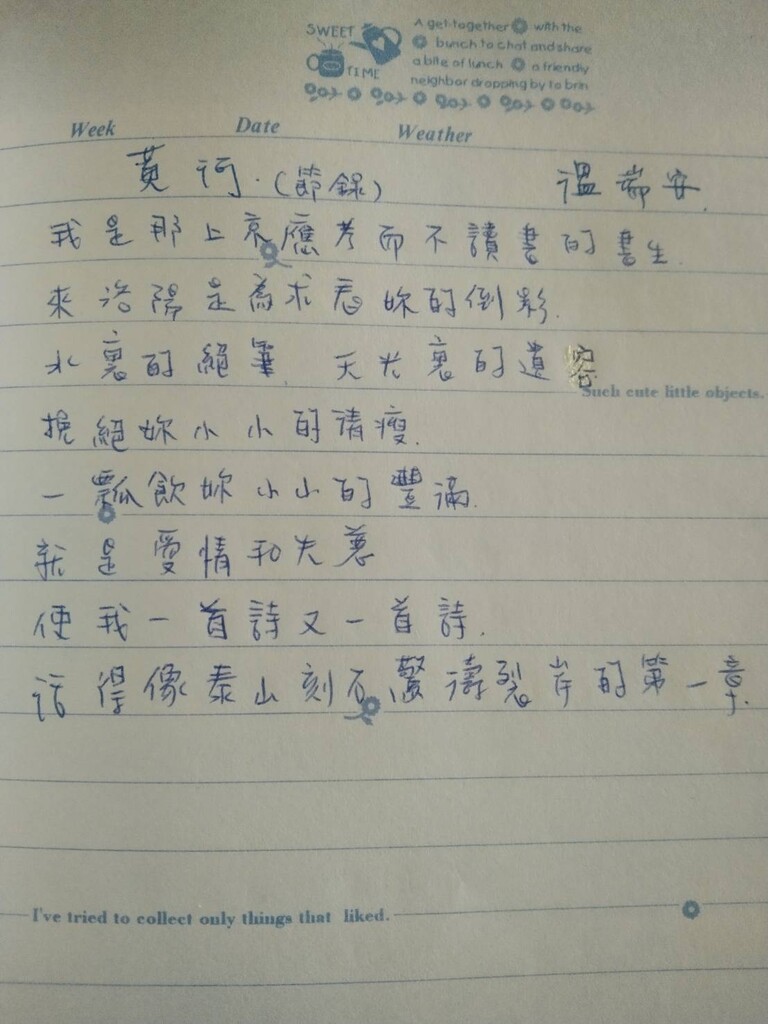 SWEET TIME
A get-together with the
bunch to chat and share
a bite of lunch a friendly
neighbor dropping by to brin
Week Date Weather
黃河.(節錄) 溫瑞安.
我是那上京應考而不讀書的書生.
來洛陽是為求看妳的倒影.
水裏的絕筆、天光裏的遺容
Such cute little objects.
挽絕妳小小的清瘦.
一瓢飲妳小小的豐滿.
就是愛情和失戀
使我一首詩又一首詩.
活得像泰山刻石驚濤裂岸的第一章.
I've tried to collect only things that liked.